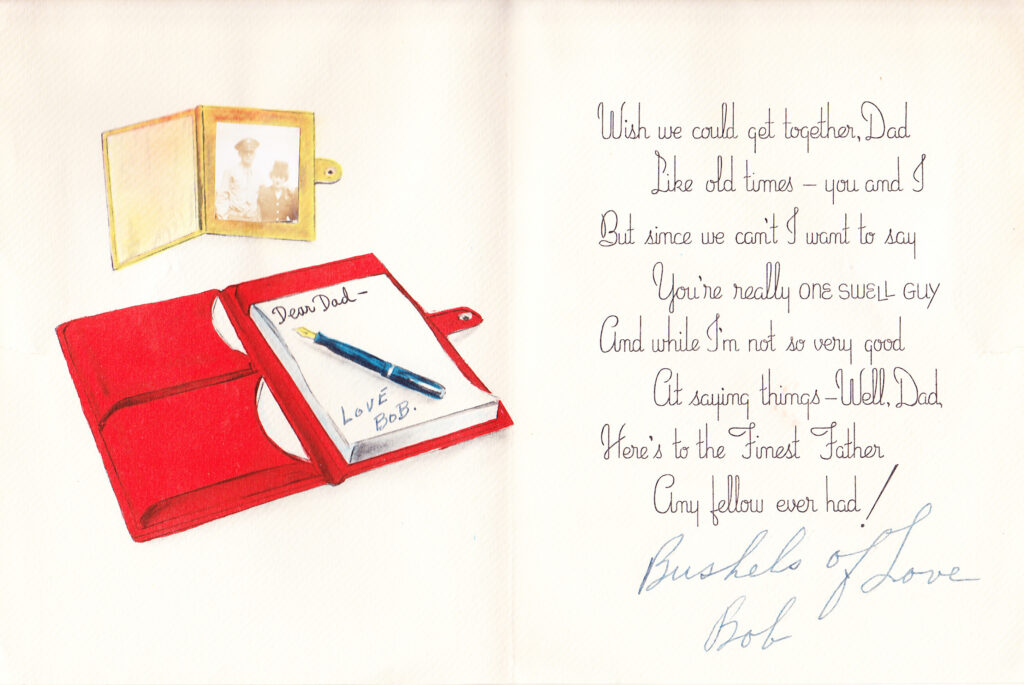 Dear Dad—
LOVE
BOB.
Wish we could get together, Dad
Like old times – you and I
But since we can't I want to say
You're really ONE SWELL GUY
And while I'm not so very good
At saying things – Well, Dad,
Here's to the Finest Father
Any fellow ever had!
Bushels of Love
Bob